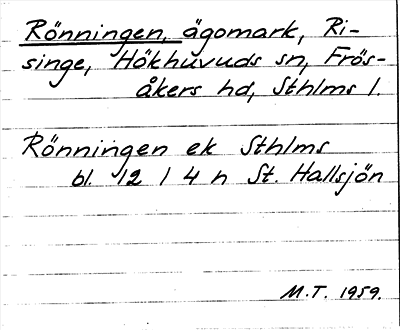 Rönningen, ägomark, Ri-
singe, Hökhuvuds sn, Frös-
åkers hd, Sthlms l.
Rönningen ek Sthlms
bl. 12 / 4 h St. Hallsjön
M.T. 1959.